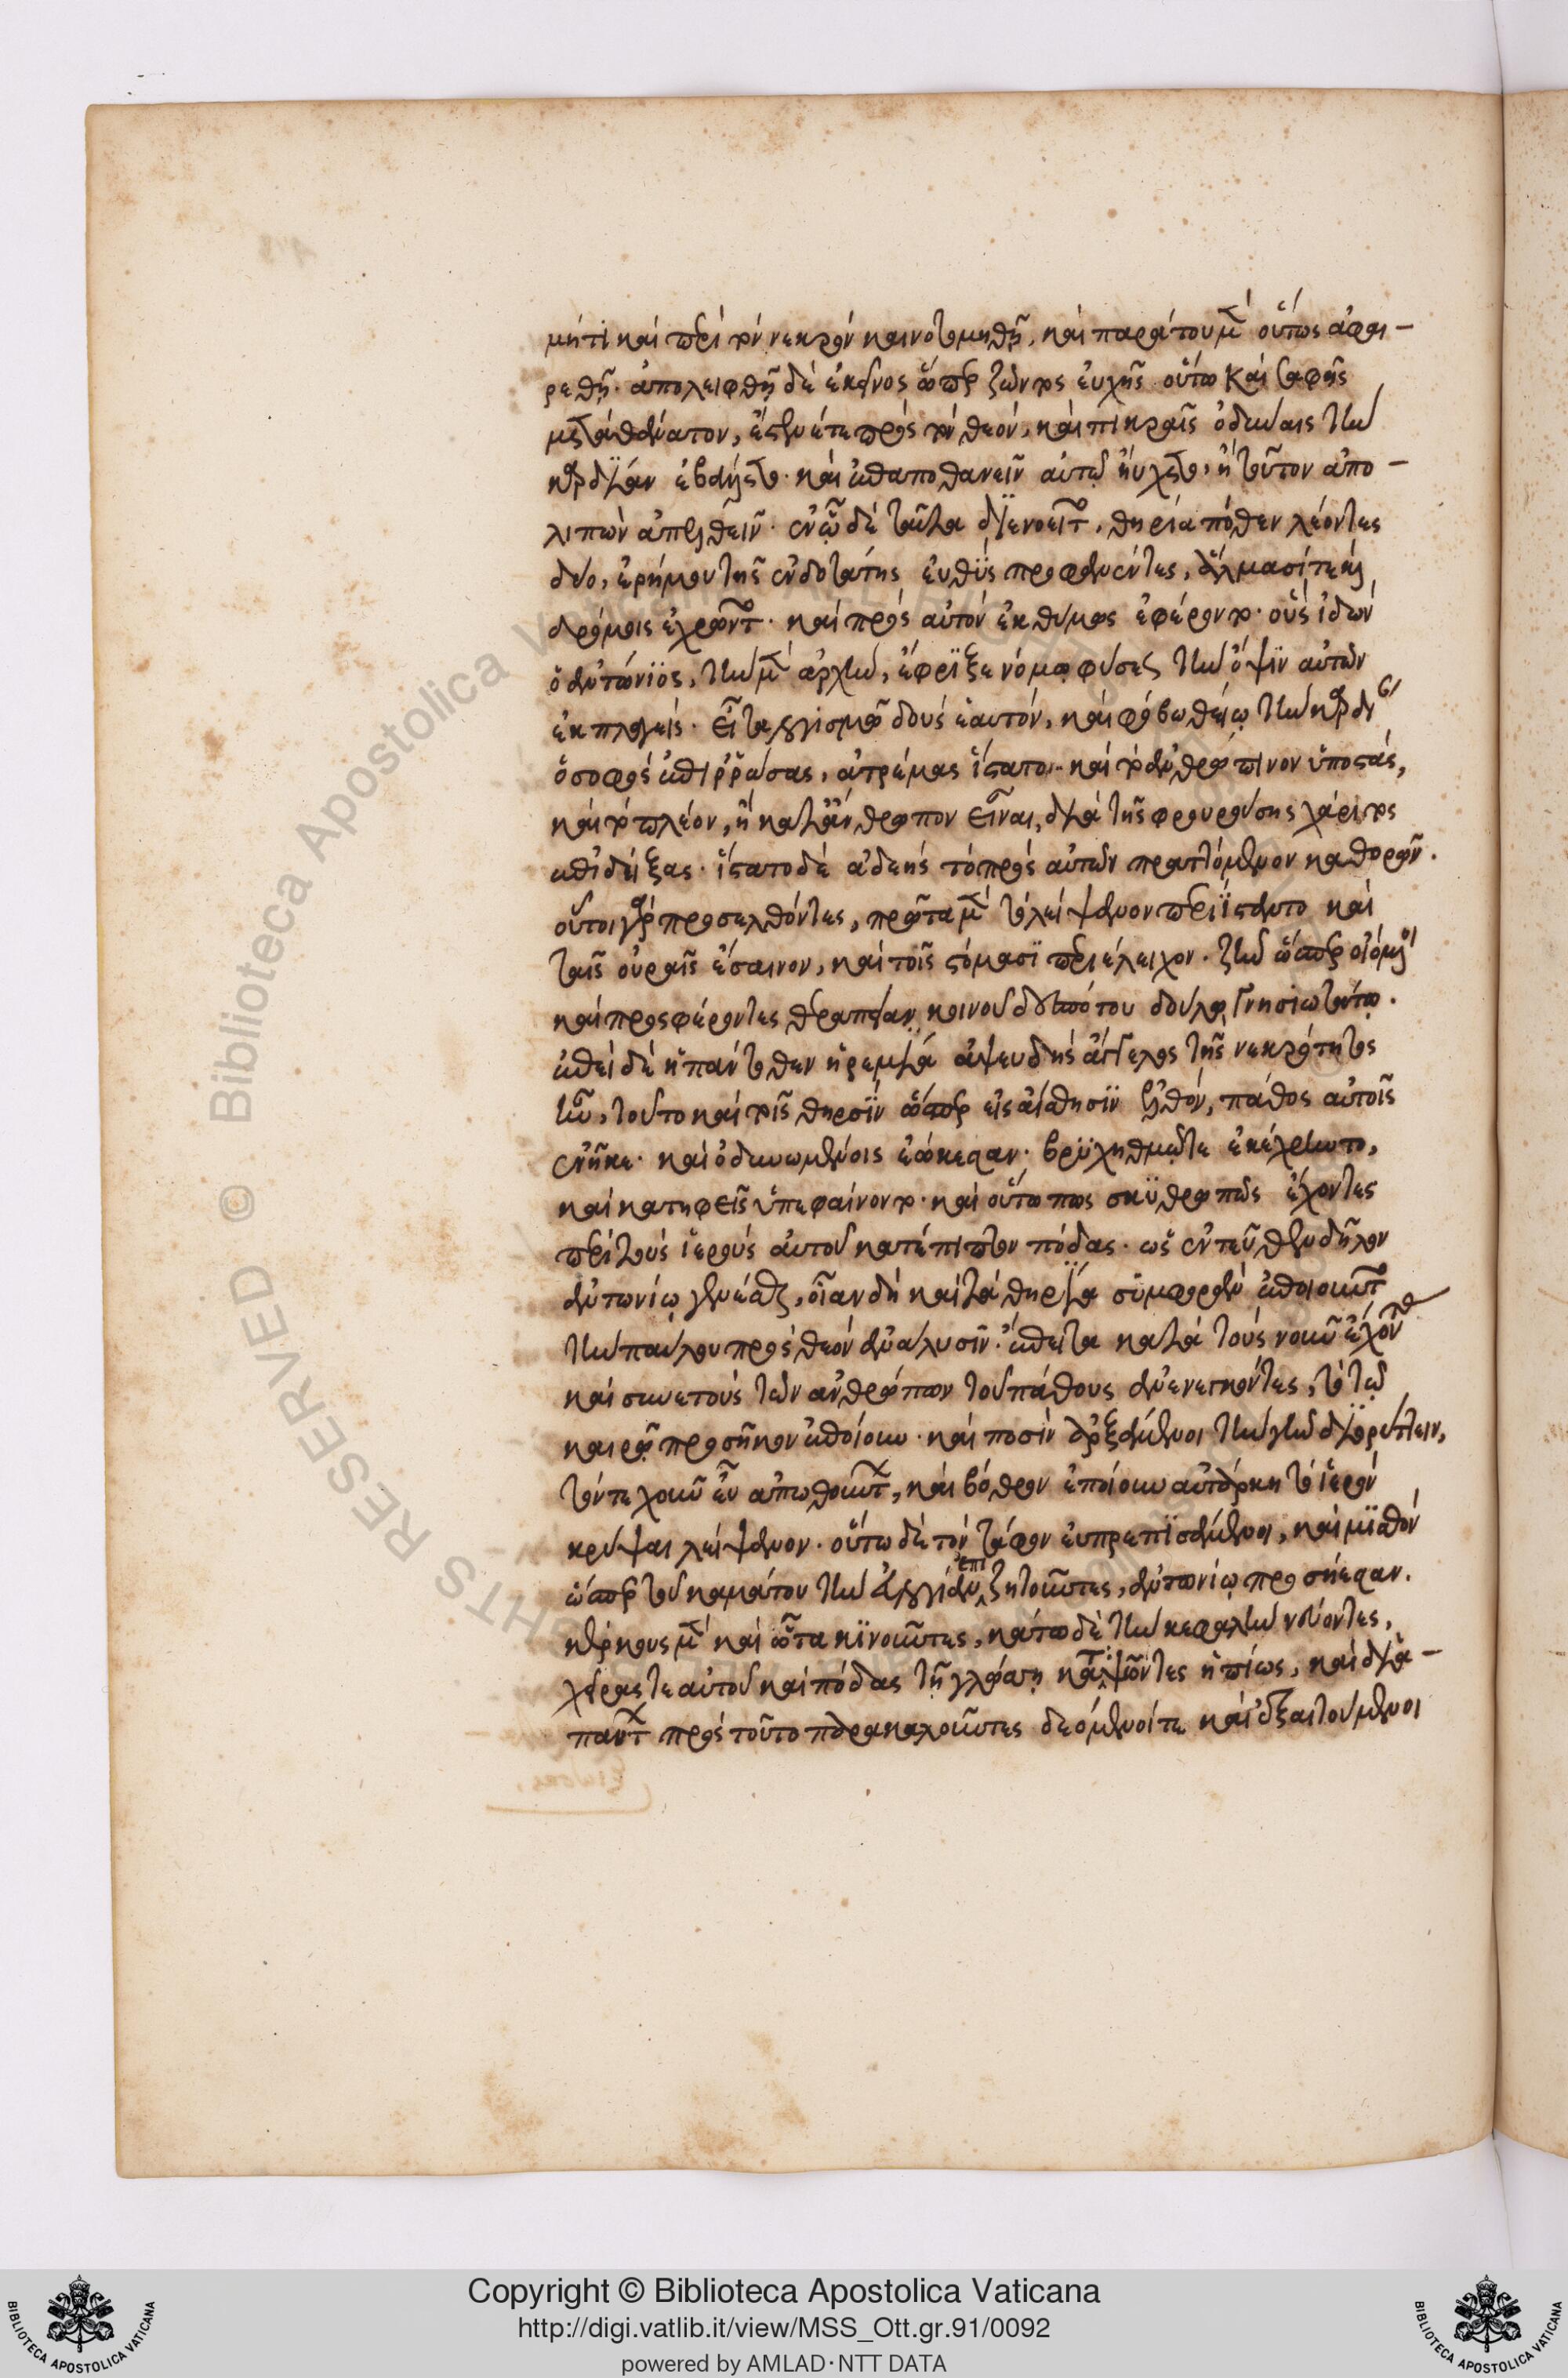 μήτι καὶ περὶ τὸν νεκρὸν καινοτομηθῇ, καὶ παρὰ τοῦ μὲν οὕτως ἀφαι-
ρεθῇ. ἀπολειφθῇ δὲ ἐκεῖνος ὥσπερ ζῶντος εὐχῆς οὕτω καὶ ταφῆς
μετὰ θάνατον, ἔστενέ τε πρὸς τὸν θεόν, καὶ πικραῖς ὀδύναις τὴν
καρδίαν ἐβάλλετο. καὶ ἐπαποθανεῖν αὐτῷ ηὔχετο, ἢ τοῦτον ἀπο-
λιπὼν ἀπελθεῖν. ἐν ᾧ δὲ ταῦτα διενοεῖτο, θηρία πόθεν λέοντες
δύο, ἐρήμου τῆς ἐνδοτάτης εὐθὺς προφανέντες, ἅλμασί τε καὶ
δρόμοις ἐχρῶντο. καὶ πρὸς αὐτὸν ἐκθύμως ἐφέροντο. οὓς ἰδὼν
ὁ ἀντώνιος, τὴν μὲν ἀρχὴν, ἔφριξε νόμῳ φύσεως τὴν ὄψιν αὐτῶν
ἐκπλαγείς. εἶτα λογισμῷ δοὺς ἑαυτόν, καὶ φόβῳ θείῳ τὴν καρδίαν
ὁ σοφὸς ἐπιρρώσας, ἀτρέμας ἵστατο. καὶ τὸ ἀνθρώπινον ὑποστάς,
καὶ τὸ πλέον, ἢ κατ' ἄνθρωπον εἶναι, διὰ τῆς φρουρούσης χάριτος
ἐπιδείξας. ἵστατο δὲ ἀδεὴς τὸ πρὸς αὐτῶν πραττόμενον καθορῶν.
οὗτοι γὰρ προσελθόντες, πρῶτα μὲν τὸ λείψανον περιΐσταντο καὶ
ταῖς οὐραῖς ἔσαινον, καὶ τοῖς στόμασι περιέλειχον. ζῆν ὥσπερ οἰόμενοι
καὶ προσφέροντες θεραπείαν κοινοῦ δεσπότου δούλῳ γνησιωτάτῳ.
ἐπεὶ δὲ ἡ πάντοθεν ἠρεμία ἀψευδὴς ἄγγελος τῆς νεκρότητος
ἦν, τοῦτο καὶ τοῖς θηρσὶν ὥσπερ εἰς αἴσθησιν ἐλθόν, πάθος αὐτοῖς
ἐνῆκε. καὶ ὀδυνωμένοις ἐῴκεσαν. βρυχηθμῷ τε ἐκέχρηντο,
καὶ κατηφεῖς ὑπεφαίνοντο. καὶ οὕτω πως σκυθρωπῶς ἔχοντες
περὶ τοὺς ἱεροὺς αὐτοῦ κατέπιπτον πόδας. ὡς ἐντεῦθεν δῆλον
ἀντωνίῳ γενέσθαι, οἵαν δὴ καὶ τὰ θηρία συμφορὰν ἐποιοῦντο
τὴν παύλου πρὸς θεὸν ἀνάλυσιν. ἔπειτα κατὰ τοὺς νοῦν ἔχοντας
καὶ συνετοὺς τῶν ἀνθρώπων τοῦ πάθους ἀνενεγκόντες, τὸ τῷ
καιρῷ προσῆκον ἐποίουν. καὶ ποσὶν ἀρξάμενοι τὴν γῆν διορύττειν,
τόν τε χοῦν ἓν ἀπωθοῦντο, καὶ βόθρον ἐποίουν αὐτάρκη τὸ ἱερὸν
κρύψαι λείψανον. οὕτω δὲ τὸν τάφον εὐπρεπισάμενοι, καὶ μισθὸν
ὥσπερ τοῦ καμάτου τὴν εὐλογίαν ἐπιζητοῦντες, ἀντωνίῳ προσῄεσαν.
κέρκους μὲν καὶ ὦτα κινοῦντες, κάτω δὲ τὴν κεφαλὴν νεύοντες,
χεῖράς τε αὐτοῦ καὶ πόδας τῇ γλώσσῃ καταψῶντες ἠπίως, καὶ διὰ-
παντὸς πρὸς τοῦτο παρακαλοῦντες δεόμενοί τε καὶ ἐξαιτούμενοι
Copyright © Biblioteca Apostolica Vaticana
http://digi.vatlib.it/view/MSS_Ott.gr.91/0092
powered by AMLAD·NTT DATA